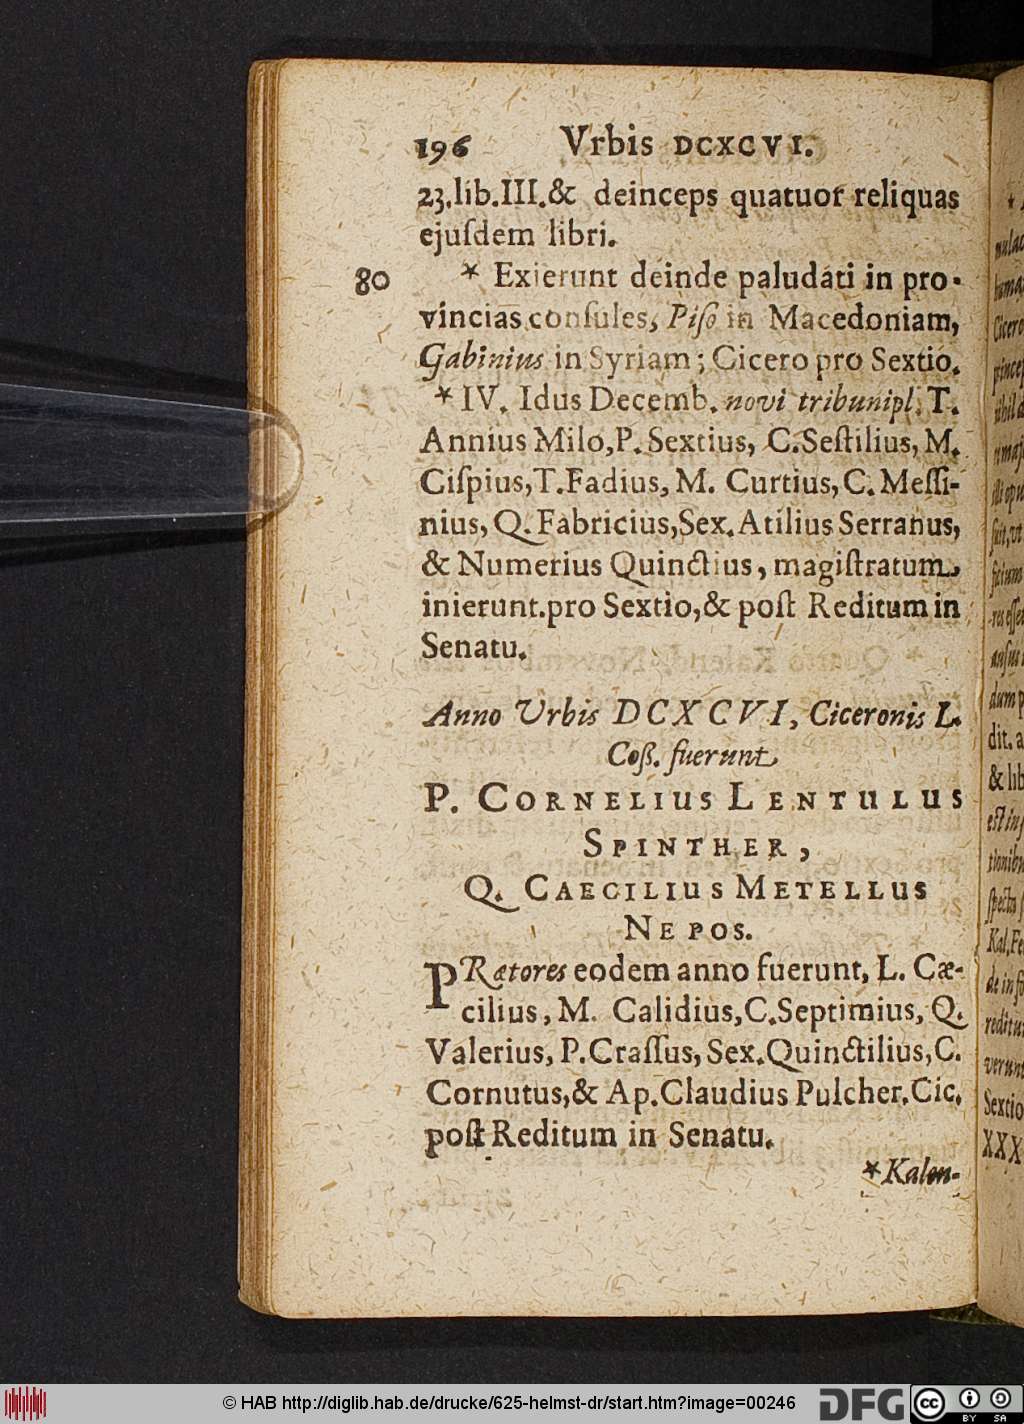 196 Vrbis DCXCVI.
23.lib.III.& deinceps quatuor reliquas
ejuſdem libri.
80 * Exierunt deinde paludati in pro-
vincias conſules, Piſo in Macedoniam,
Gabinius in Syriam; Cicero pro Sextio.
* IV. Idus Decemb. novi tribunipl. T.
Annius Milo, P. Sextius, C. Seſtilius, M.
Ciſpius, T. Fadius, M. Curtius, C. Meſſi-
nius, Q. Fabricius, Sex. Atilius Serranus,
& Numerius Quinctius, magiſtratum
inierunt. pro Sextio, & poſt Reditum in
Senatu.
Anno Vrbis DCXCVI, Ciceronis L.
Coß. fuerunt
P. CORNELIUS LENTULUS
SPINTHER,
Q. CAECILIUS METELLUS
NEPOS.
PRætores eodem anno fuerunt, L. Cæ-
cilius, M. Calidius, C. Septimius, Q.
Valerius, P. Craſſus, Sex. Quinctilius, C.
Cornutus, & Ap. Claudius Pulcher. Cic.
poſt Reditum in Senatu.
* Kalen-
dit. a
& lib
Sextio
XXX
© HAB http://diglib.hab.de/drucke/625-helmst-dr/start.htm?image=00246
DFG
cc
BY SA